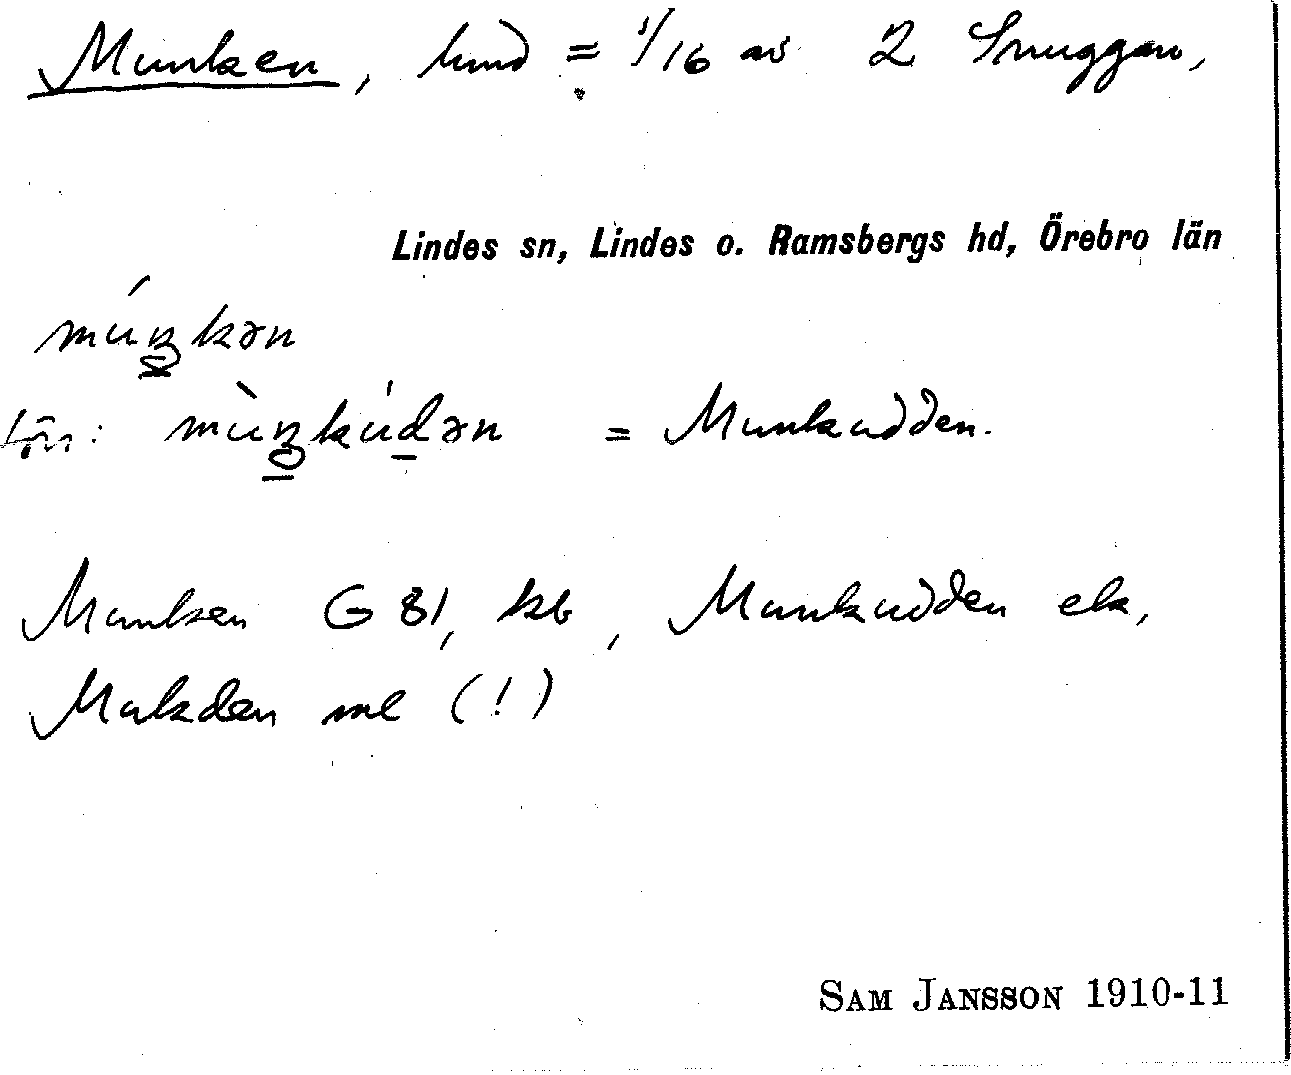 Munken, hmd = 1/16 av 2 Snuggan,
Lindes sn, Lindes o. Ramsbergs hd, Örebro län
múŋkən
mùŋkúdən = Munkudden.
Munken G 81, kb, Munkudden ek,
Mukden ml (!)
SAM JANSSON 1910-11